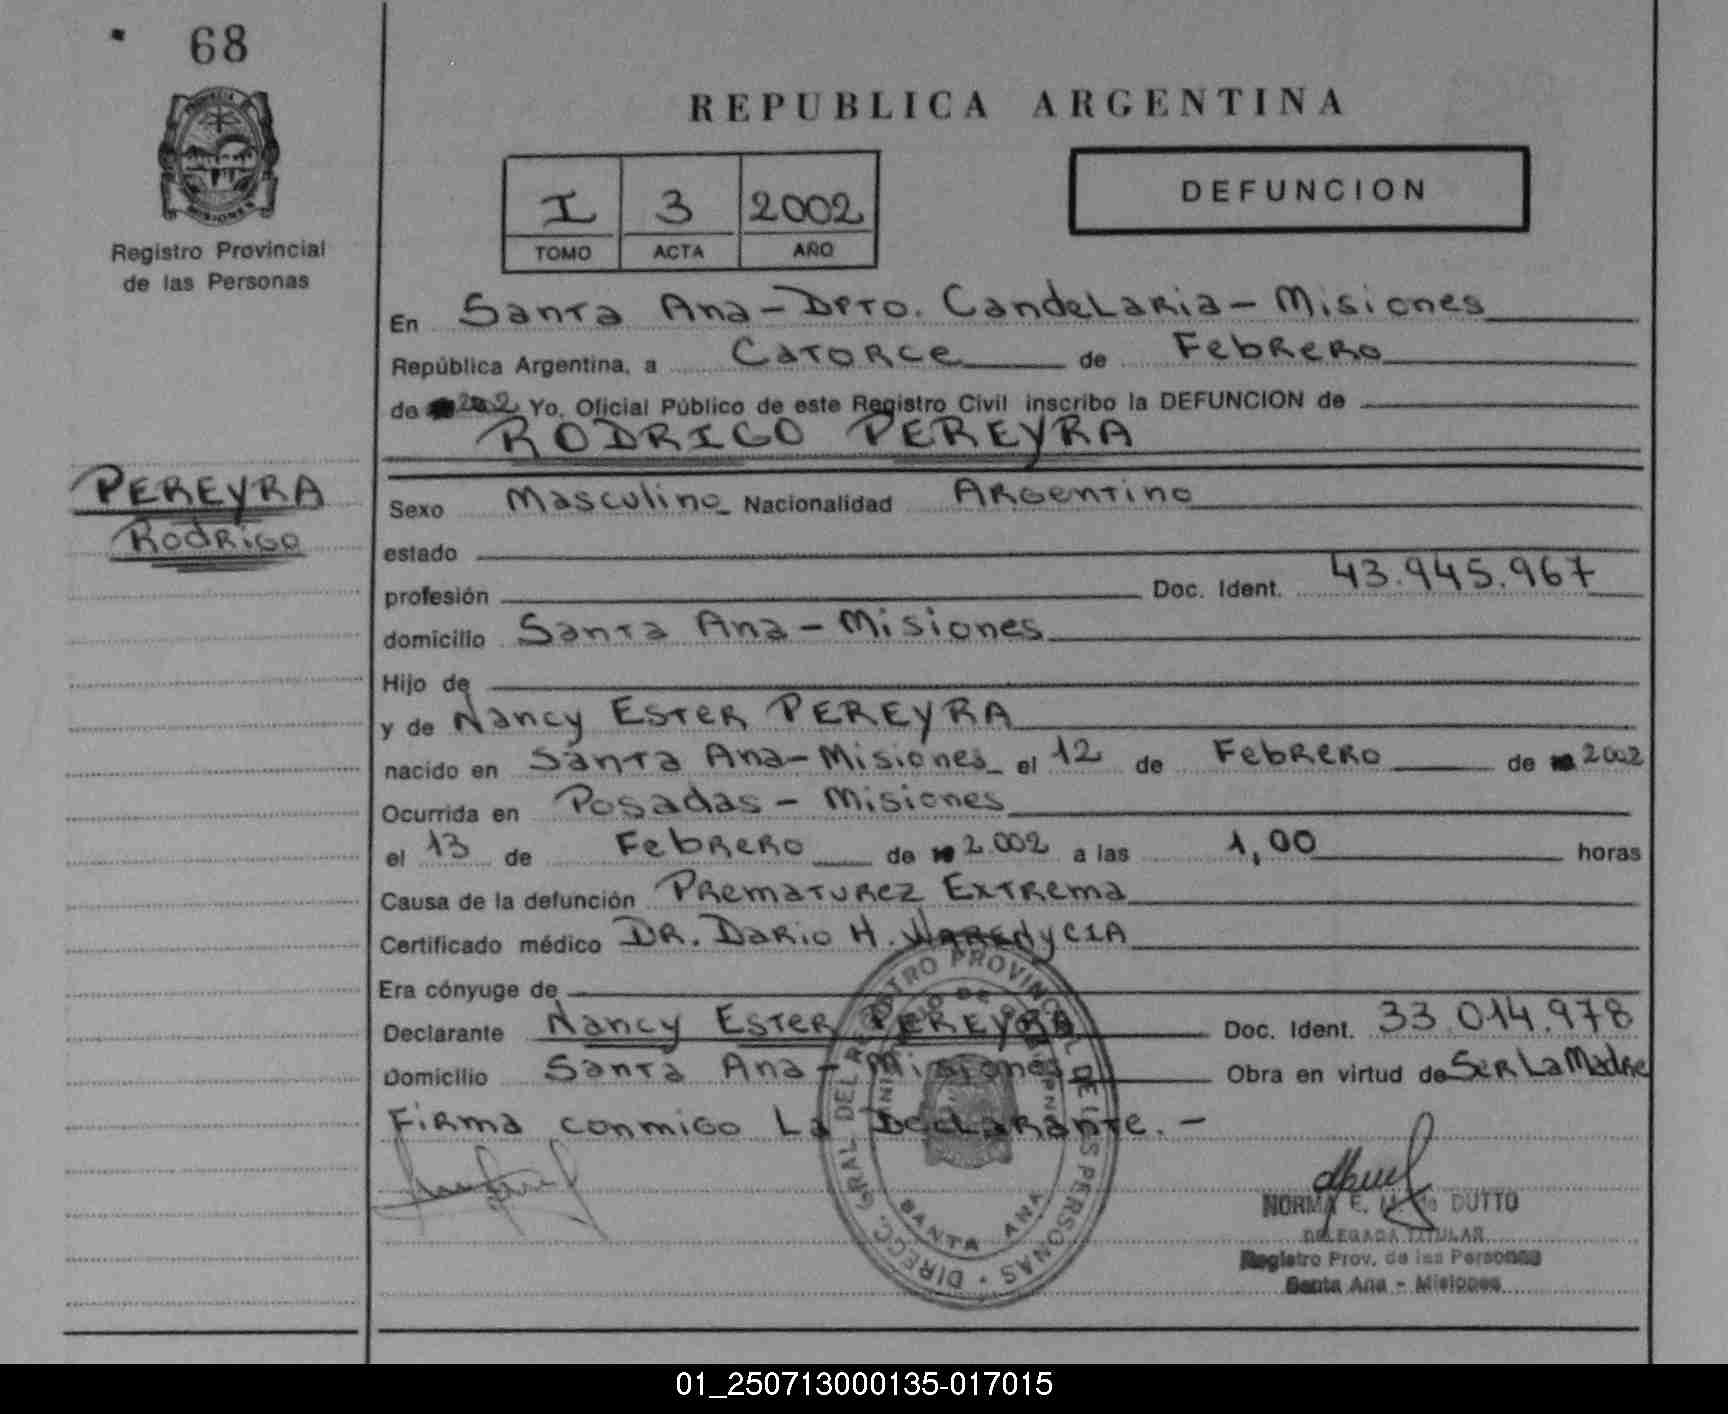 68
REPUBLICA ARGENTINA
PROVINCIA
MISIONES
Registro Provincial
de las Personas
I 3 2002
TOMO ACTA AÑO
DEFUNCION
En Santa Ana - Dpto. Candelaria - Misiones
República Argentina, a Catorce de Febrero
de 2002 Yo, Oficial Público de este Registro Civil inscribo la DEFUNCION de
RODRIGO PEREYRA
PEREYRA
Rodrigo
Sexo Masculino Nacionalidad Argentino
estado
profesión Doc. Ident. 43.945.967
domicilio Santa Ana - Misiones
Hijo de
y de Nancy Ester PEREYRA
nacido en Santa Ana - Misiones el 12 de Febrero de 2002
Ocurrida en Posadas - Misiones
el 13 de Febrero de 2.002 a las 1,00 horas
Causa de la defunción Prematurez Extrema
Certificado médico DR. Dario H.
Era cónyuge de
Declarante Nancy Ester PEREYRA Doc. Ident. 33.014.978
Domicilio Santa Ana - Misiones Obra en virtud de Ser La Madre
Firma conmigo La Declarante. -
DIRECC. GRAL DEL REGISTRO PROVINCIAL DE LAS PERSONAS
SANTA ANA
NORMA E. DUTTO
DELEGADA TITULAR
Registro Prov. de las Personas
Santa Ana - Misiones
01_250713000135-017015